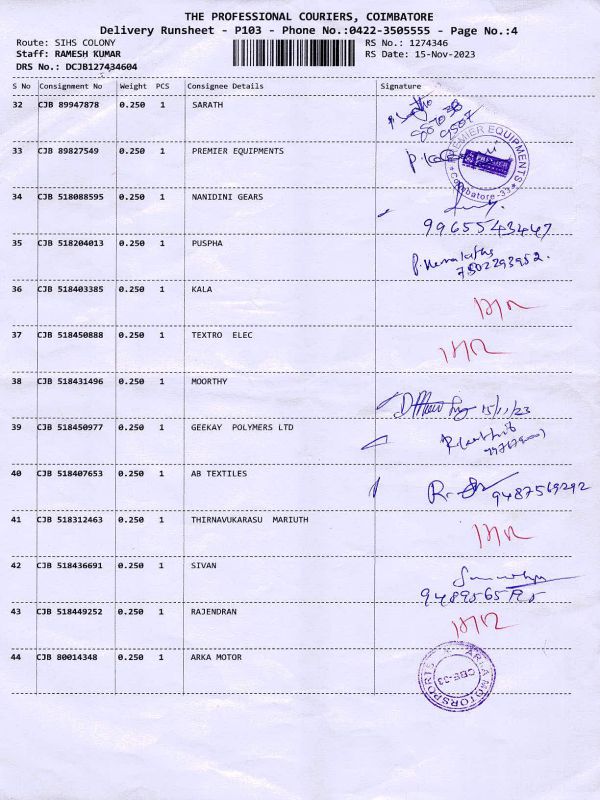 THE PROFESSIONAL COURIERS, COIMBATORE
Delivery Runsheet - P103 - Phone No.:0422-3505555 - Page No.:4
Route: SIHS COLONY RS No.: 1274346
Staff: RAMESH KUMAR RS Date: 15-Nov-2023
DRS No.: DCJB127434604
S No Consignment No Weight PCS Consignee Details Signature
32 CJB 89947878 0.250 1 SARATH
33 CJB 89827549 0.250 1 PREMIER EQUIPMENTS
PREMIER EQUIPMENTS
PREMIER
Coimbatore-33
34 CJB 518088595 0.250 1 NANIDINI GEARS
9965543447
35 CJB 518204013 0.250 1 PUSPHA
P. Hemalatha
7502293952.
36 CJB 518403385 0.250 1 KALA
37 CJB 518450888 0.250 1 TEXTRO ELEC
38 CJB 518431496 0.250 1 MOORTHY
15/11/23
39 CJB 518450977 0.250 1 GEEKAY POLYMERS LTD
40 CJB 518407653 0.250 1 AB TEXTILES
9487569292
41 CJB 518312463 0.250 1 THIRNAVUKARASU MARIUTH
42 CJB 518436691 0.250 1 SIVAN
43 CJB 518449252 0.250 1 RAJENDRAN
44 CJB 80014348 0.250 1 ARKA MOTOR
ARKA MOTORSPORTS
CBE-33